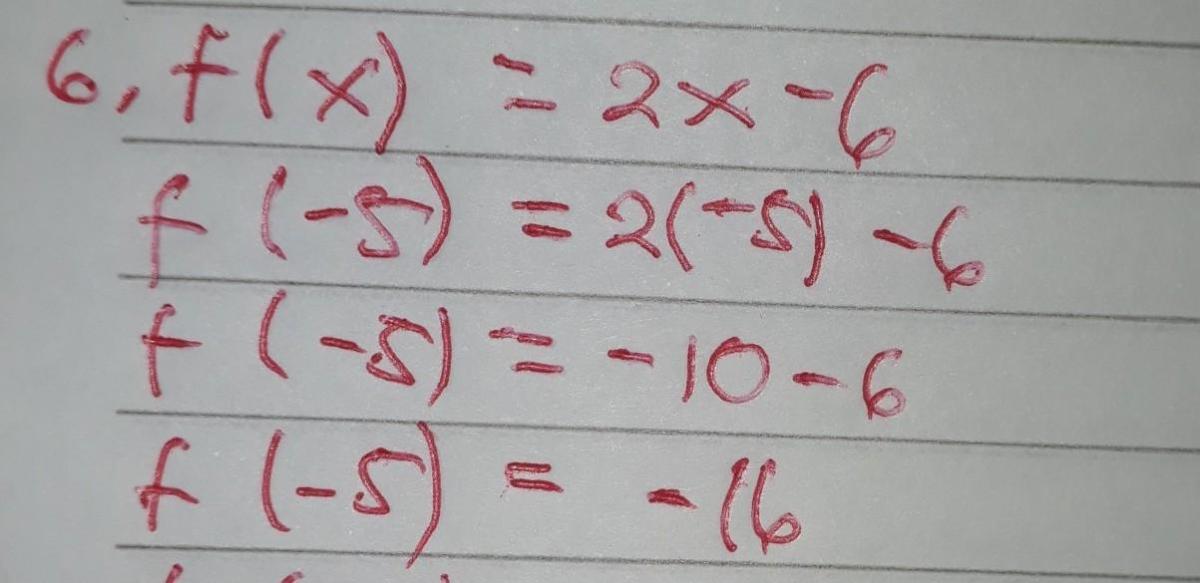 6, f(x) = 2x - 6
f (-5) = 2(-5) - 6
f (-5) = -10 - 6
f (-5) = -16